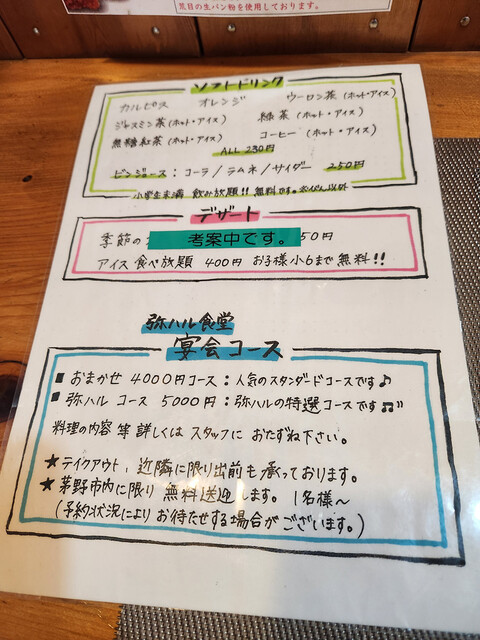 荒目の生パン粉を使用しております。
ソフトドリンク
カルピス オレンジ ウーロン茶(ホット・アイス)
ジャスミン茶(ホット・アイス) 緑茶(ホット・アイス)
無糖紅茶(ホット・アイス) コーヒー(ホット・アイス)
ALL 230円
ビンジュース:コーラ/ラムネ/サイダー 250円
小学生未満 飲み放題!!無料です。※びん以外
デザート
季節の 考案中です。 50円
アイス食べ放題 400円 お子様小6まで無料!!
弥ハル食堂
宴会コース
■おまかせ 4000円コース:人気のスタンダードコースです♪
■弥ハル コース 5000円:弥ハルの特選コースです♫
料理の内容等詳しくはスタッフにおたずね下さい。
★テイクアウト、近隣に限り出前も承っております。
★茅野市内に限り 無料送迎します。 1名様〜
(予約状況によりお待たせする場合がございます。)